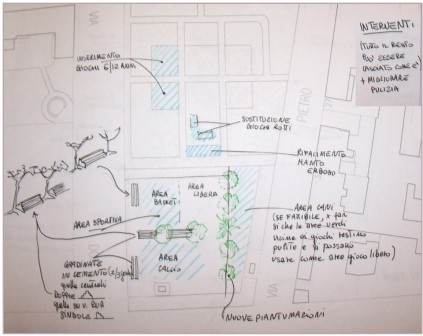 INTERVENTI
(TUTTO IL RESTO
PUÒ ESSERE
LASCIATO COM'È)
+ MIGLIORARE
PULIZIA
VIA
INSERIMENTO
GIOCHI 6/12 ANNI
PIETRO
SOSTITUZIONE
GIOCHI ROTTI
RIFACIMENTO
MANTO
ERBOSO
AREA
BASKET
AREA
LIBERA
AREA CANI
(SE FATTIBILE, X far
sì che le aree verdi
prive di giochi restino
pulite e si possano
usare come aree gioco libero)
AREA SPORTIVA
GRADINATE
IN CEMENTO
quelle centrali
DOPPIE
quelle su V. PISA
SINGOLE
AREA
CALCIO
VIA
NUOVE PIANTUMAZIONI